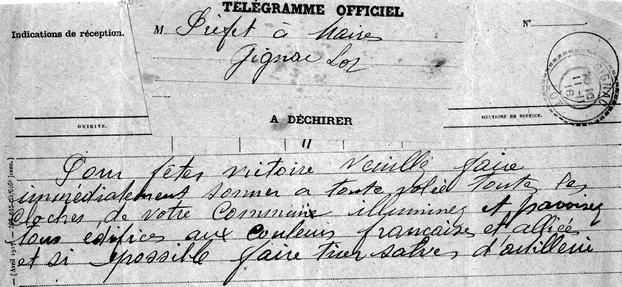 TÉLÉGRAMME OFFICIEL
Indications de réception.
M. Préfet à Maire
N°
Gignac Lot
A DÉCHIRER
ORIGINE.
MENTIONS DE SERVICE.
Pour fêtes victoire veuillez faire
immédiatement sonner a toute volée toutes les
cloches de votre Commune illuminez et pavoisez
tous édifices aux couleurs française et alliées
et si possible faire tirer salves d'artillerie